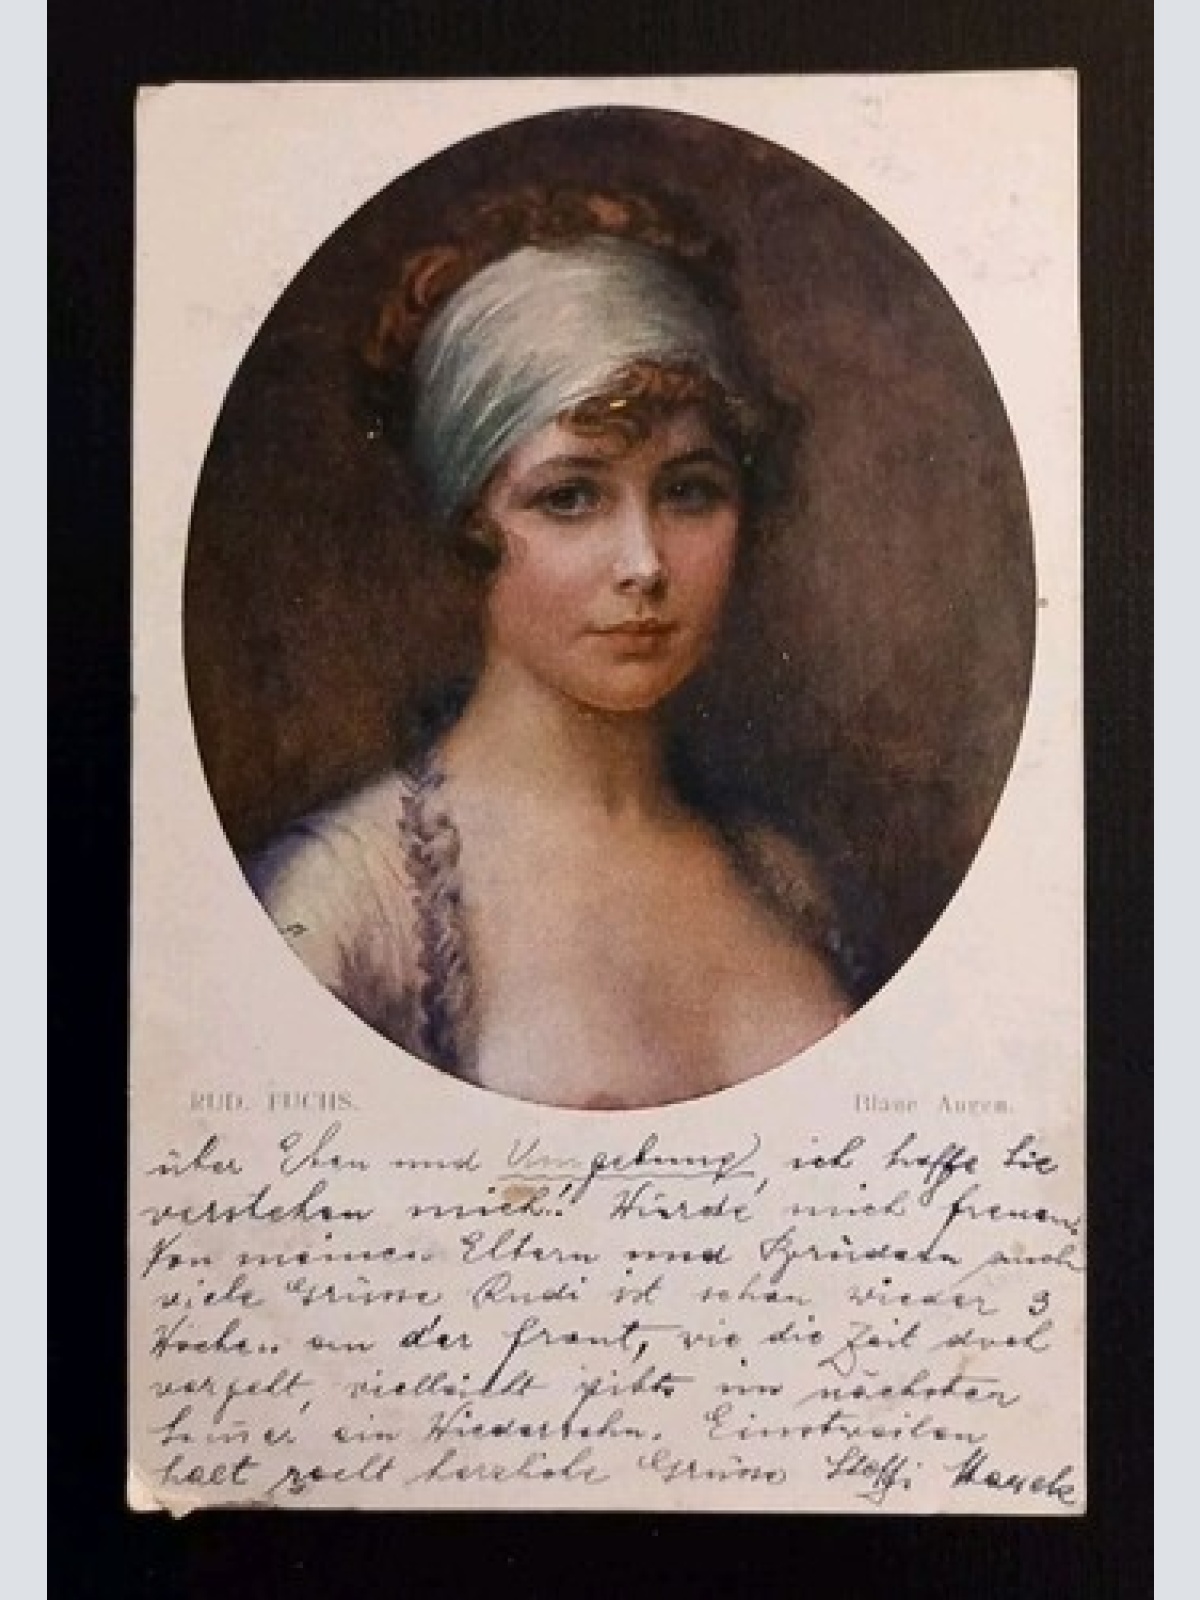 RUD. FUCHS.
Blaue Augen.
über Eben und Umgebung, ich hoffe Sie
verstehen mich! Würde mich freuen.
Von meinen Eltern und Brüdern auch
viele Grüsse Rudi ist schon wieder 3
Wochen an der Front, wie die Zeit doch
vergeht, vielleicht gibts im nächsten
ein Wiedersehn. Einstweilen
herzliche Grüsse Steffi